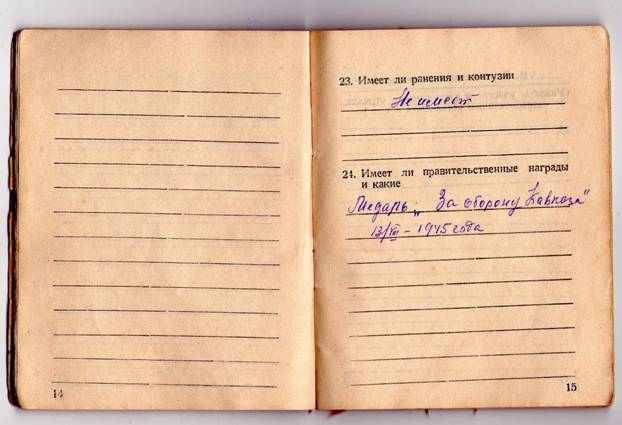 23. Имеет ли ранения и контузии
Не имеет
24. Имеет ли правительственные награды
и какие
Медаль „За оборону Кавказа"
13/VIII - 1945 года
14
15